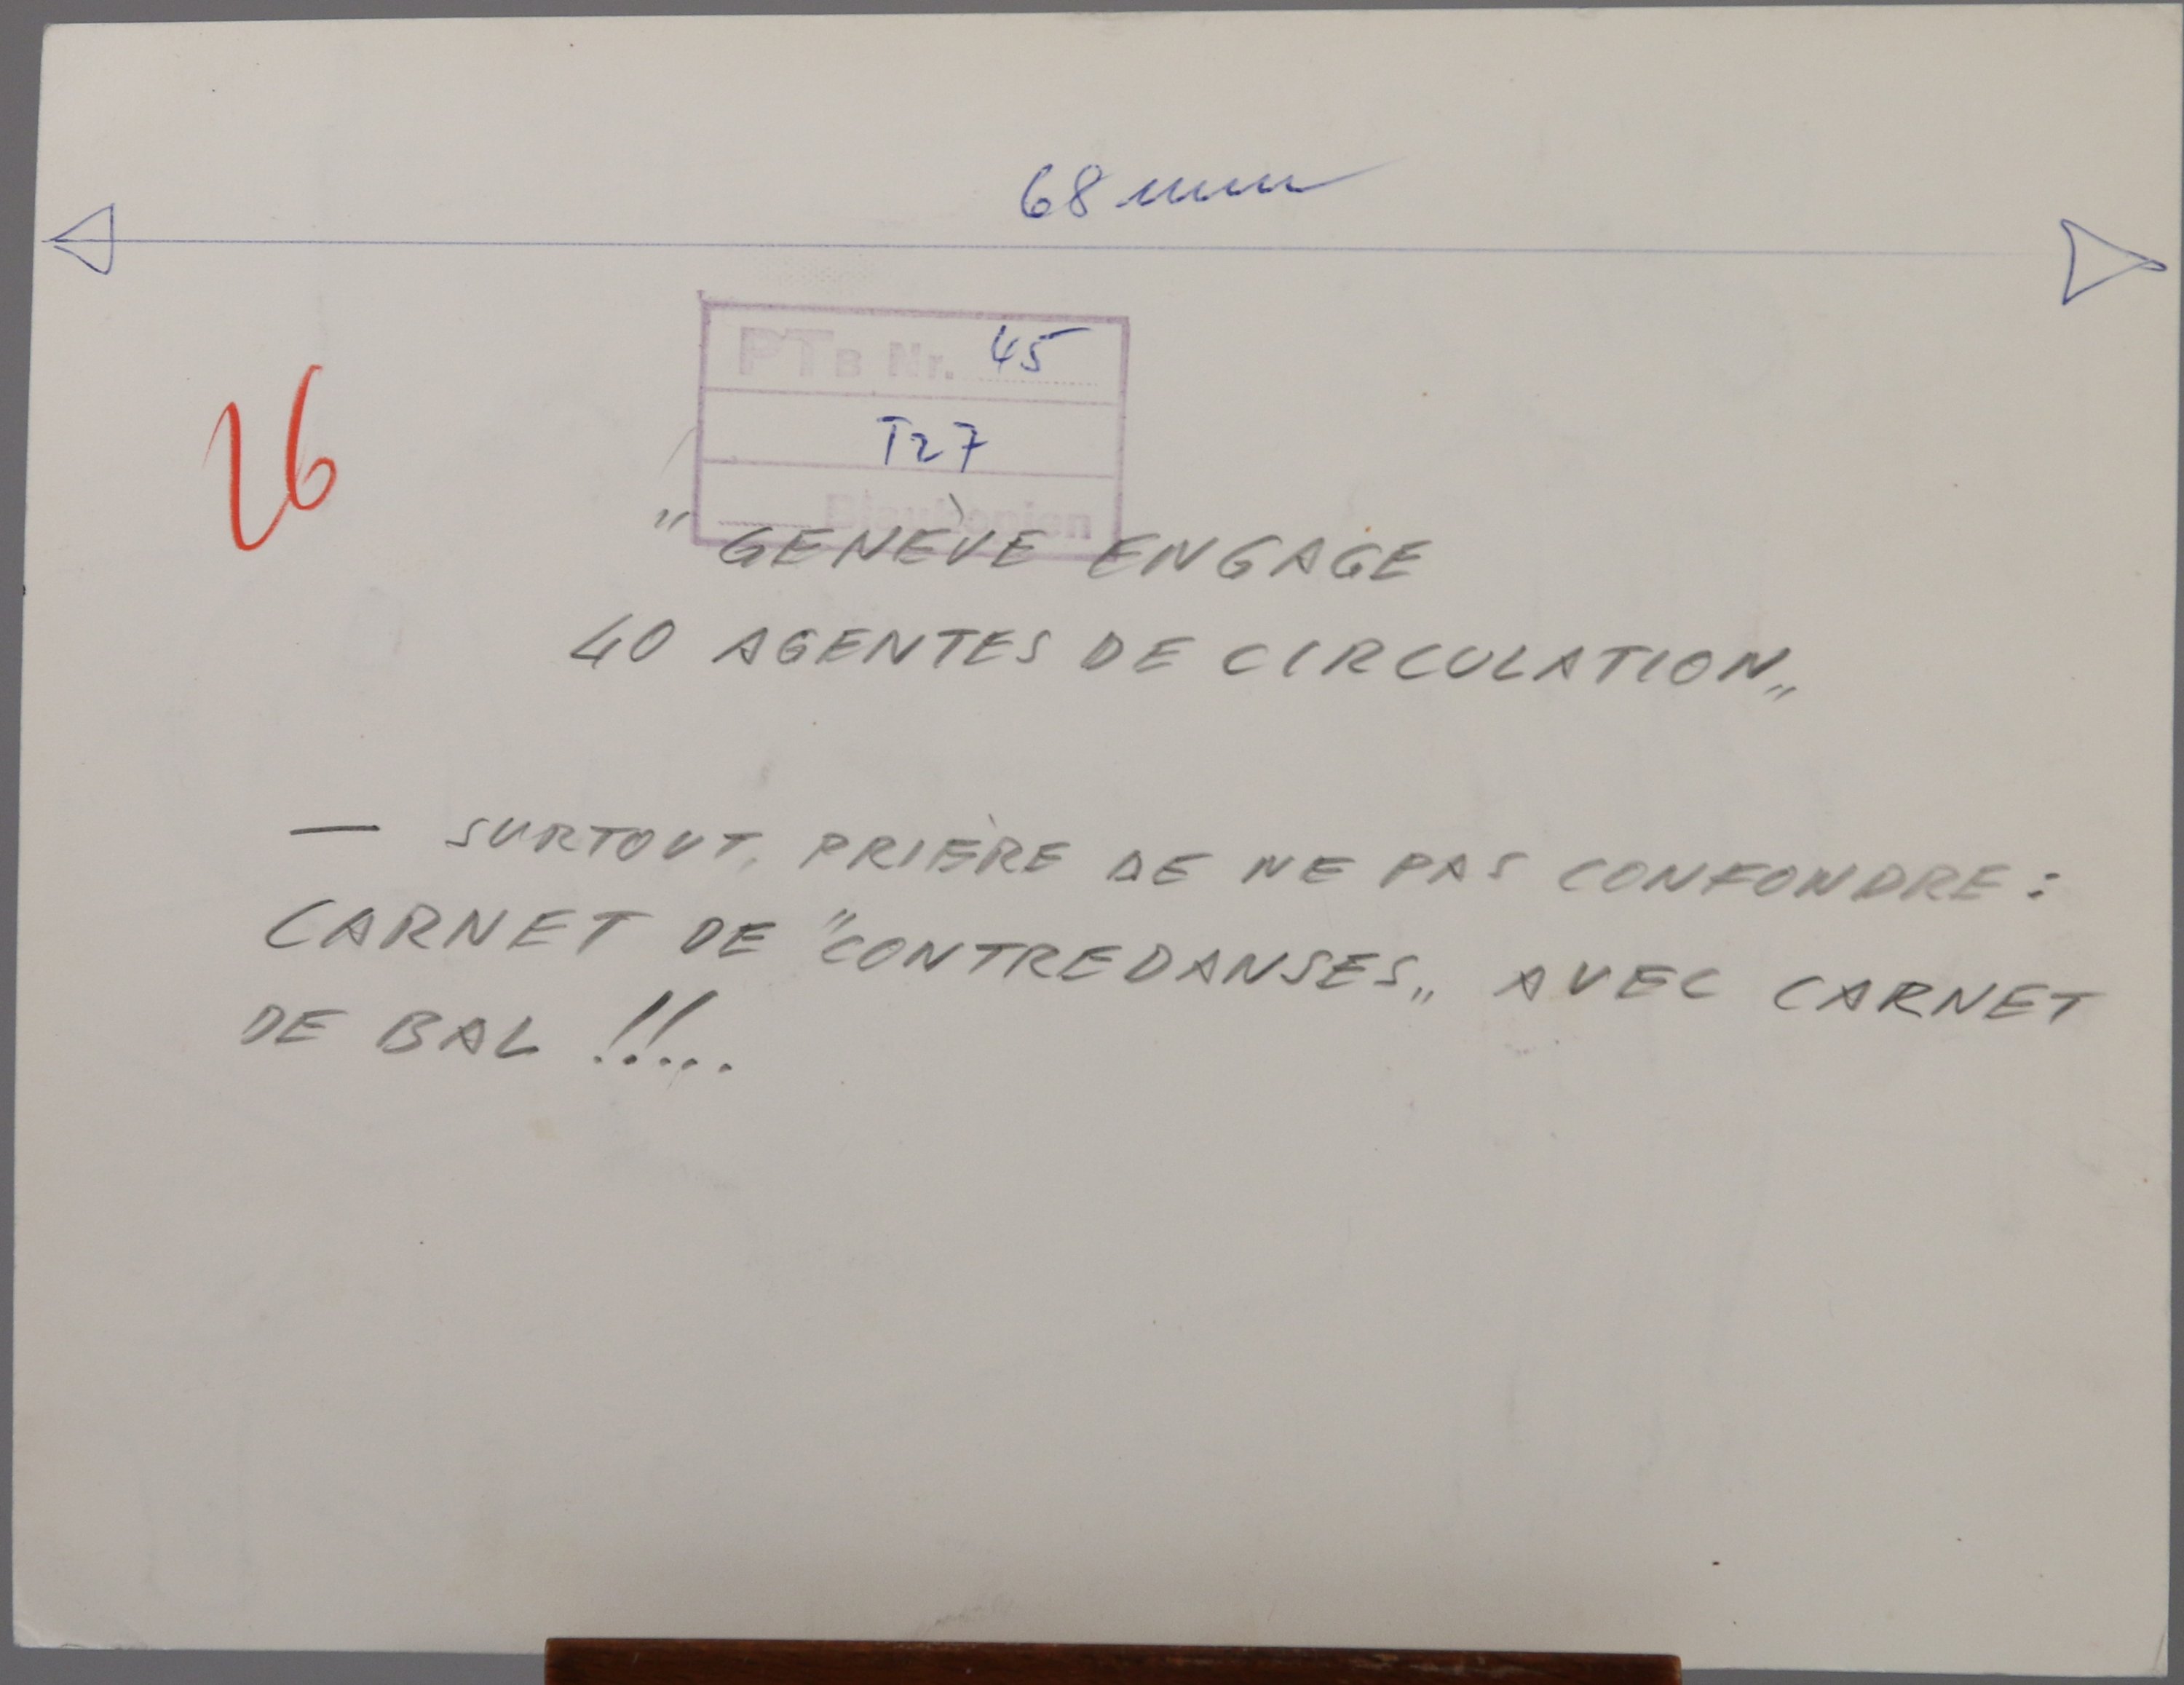 68 mm
PTB Nr. 45
T27
Blaukopien
26
" GENÈVE ENGAGE
40 AGENTES DE CIRCULATION „
— SURTOUT, PRIÈRE DE NE PAS CONFONDRE :
CARNET DE "CONTREDANSES„ AVEC CARNET
DE BAL !!...